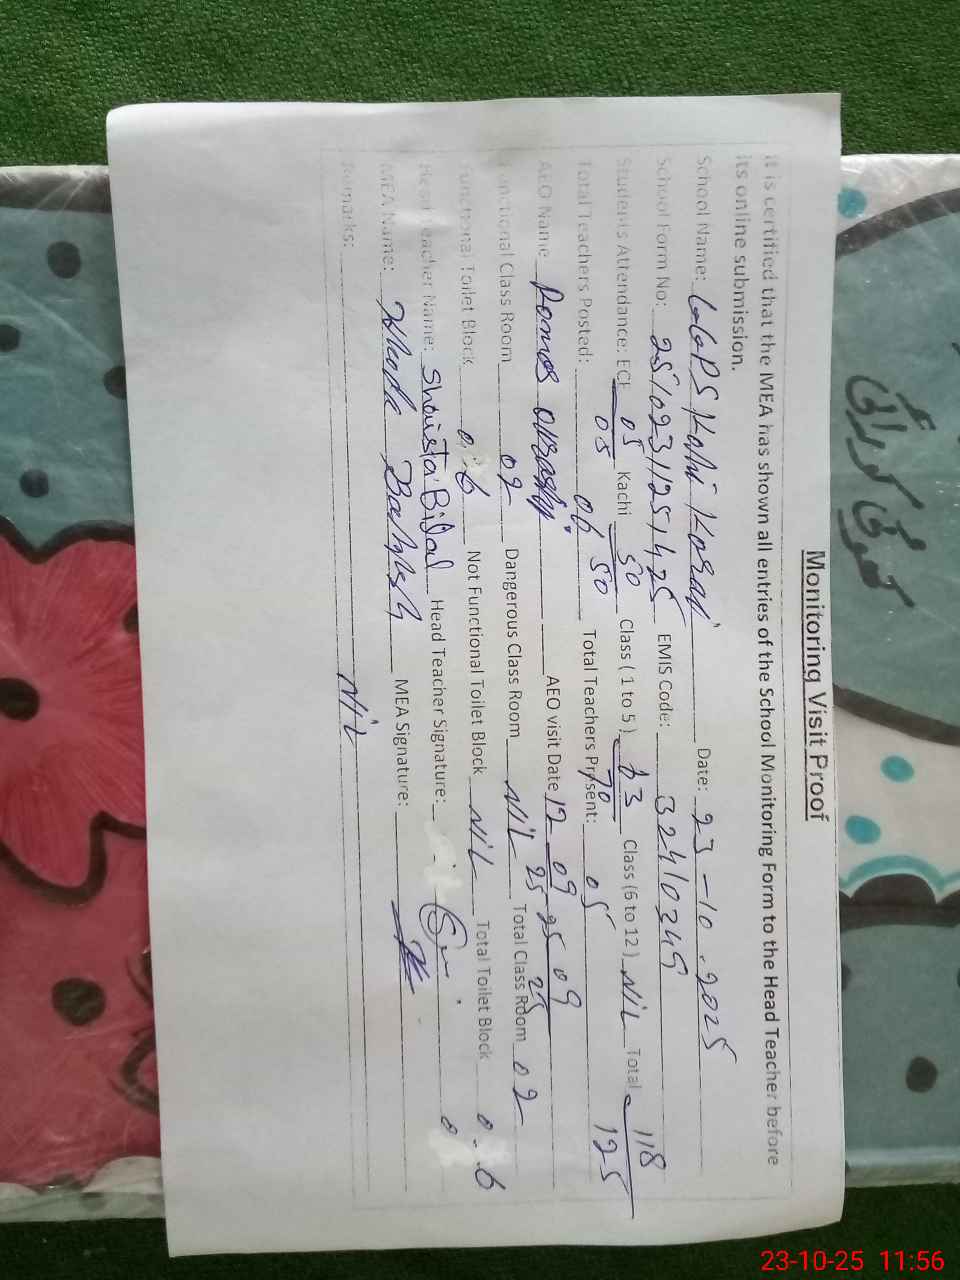 Monitoring Visit Proof
It is certified that the MEA has shown all entries of the School Monitoring Form to the Head Teacher before
its online submission.
School Name: GGPS Kahi Korai Date: 23-10.2025
School Form No: 2510231251425 EMIS Code: 32410249
Students Attendance: ECE 05/05 Kachi 50/50 Class ( 1 to 5 ) 63/70 Class (6 to 12 ) NiL Total 118/125
Total Teachers Posted: 06 Total Teachers Present: 05
AEO Name AEO visit Date 12 09 25 25 09 25
Functional Class Room 02 Dangerous Class Room NiL Total Class Room 02
Functional Toilet Block Not Functional Toilet Block NiL Total Toilet Block
Head Teacher Name: Shaista Bilal Head Teacher Signature:
MEA Name: Bakhsh MEA Signature:
Remarks: NiL
23-10-25 11:56